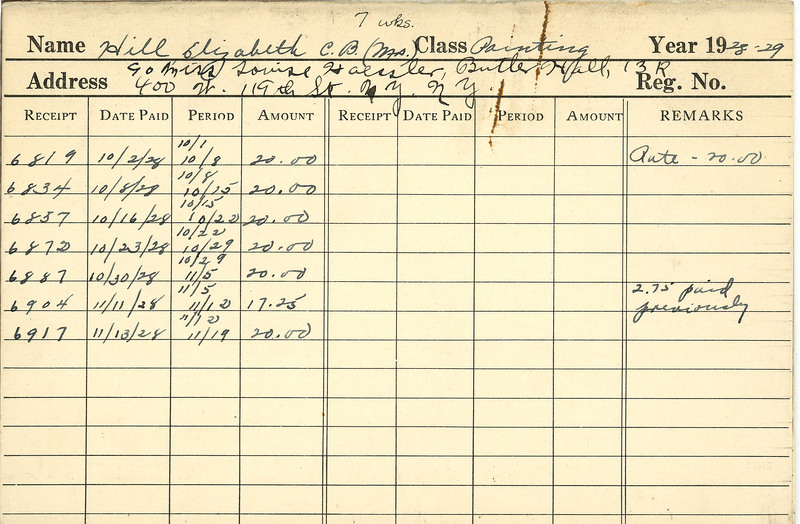 7 wks.
Name Hill Elizabeth C. B. (Mrs.) Class Painting Year 1928-29
Address Miss Louise Haessler, Butler Hall, 13 R Reg. No.
400 W. 119th St. N.Y. N.Y.
RECEIPT DATE PAID PERIOD AMOUNT RECEIPT DATE PAID PERIOD AMOUNT REMARKS
10/1
6819 10/2/28 10/8 20.00 Rate - 20.00
10/8
6834 10/8/28 10/15 20.00
10/15
6857 10/16/28 10/22 20.00
10/22
6872 10/23/28 10/29 20.00
10/29
6887 10/30/28 11/5 20.00
11/5 2.75 paid
6904 11/11/28 11/12 17.25 previously
11/12
6917 11/13/28 11/19 20.00